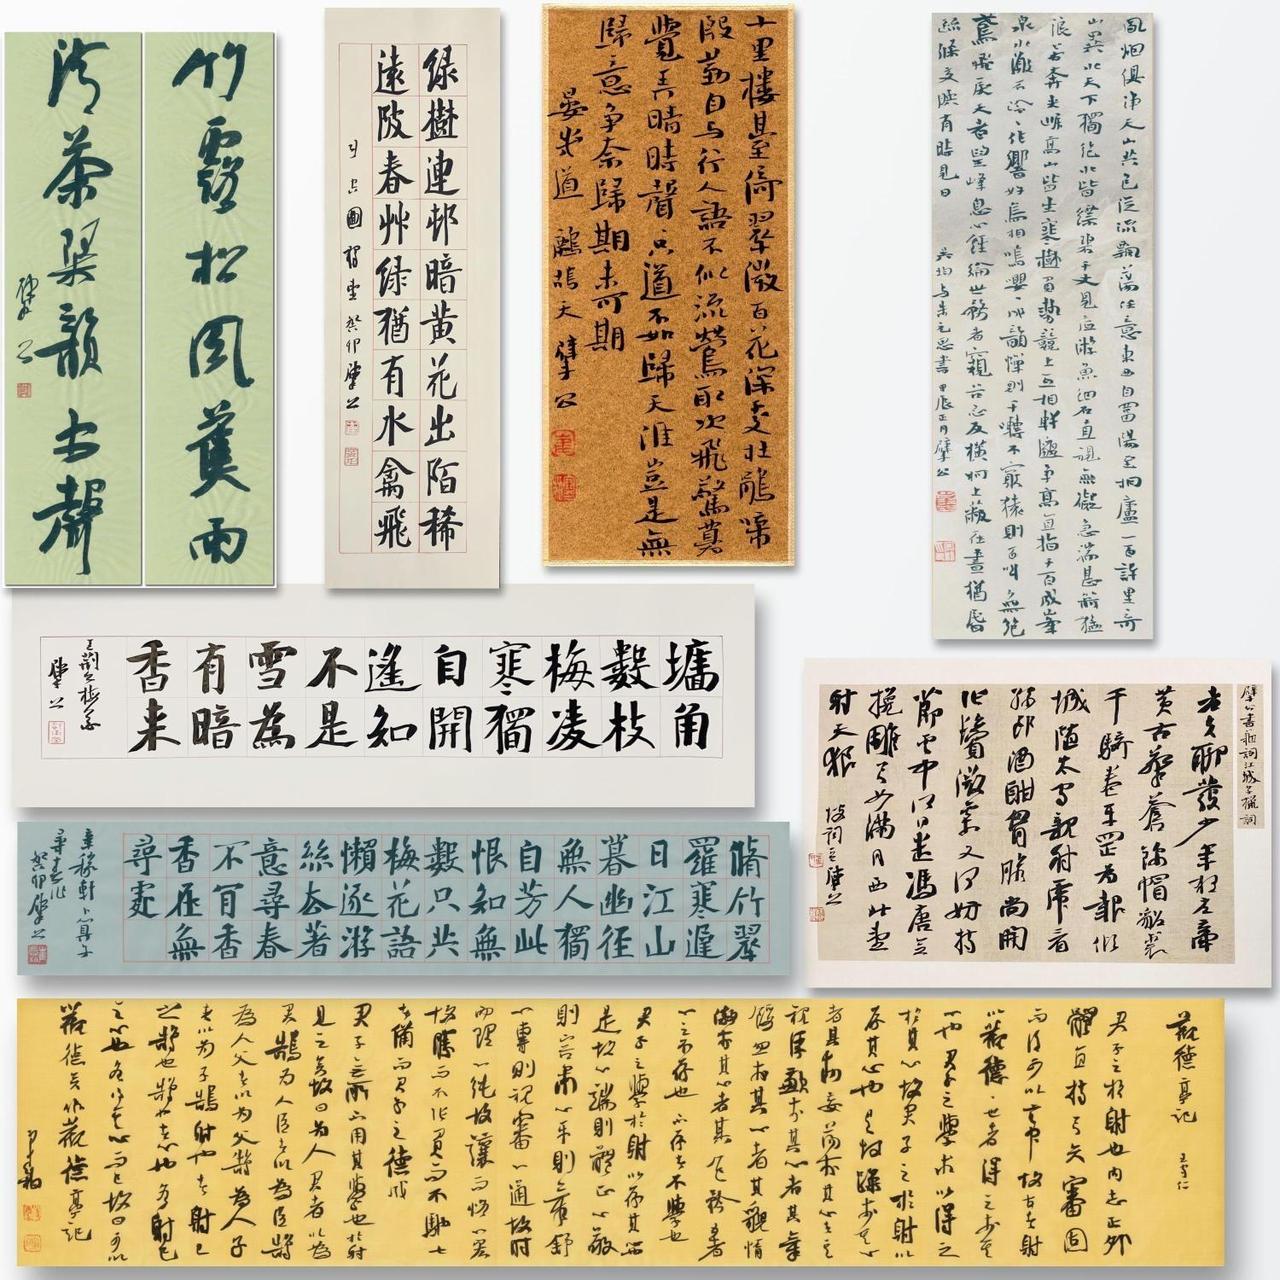 竹露松風蕉雨
清茶琴韻书聲
綠樹連邨暗黃花出陌稀
遠陂春艸綠猶有水禽飛
司空圖獨望 癸卯
十里樓臺倚翠微百花深處杜鵑啼
殷勤自与行人語不似流鶯取次飛驚夢
覺弄晴時聲〻只道不如歸天涯豈是無
歸意爭奈歸期未可期
晏几道 鷓鴣天
風烟俱淨天山共色從流飄蕩任意東西自富陽至桐廬一百許里奇
山異水天下獨絕水皆縹碧千丈見底游魚細石直視無礙急湍甚箭猛
浪若奔夾岸高山皆生寒樹負勢競上互相軒邈爭高直指千百成峯
泉水激石泠〻作響好鳥相鳴嚶〻成韻蟬則千轉不窮猿則百叫無絕
鳶飛戾天者望峰息心經綸世務者窺谷忘反橫柯上蔽在晝猶昏
疏條交映有時見日 吳均與朱元思書 甲辰正月
墻角
數枝
梅凌
寒獨
自開
遙知
不是
雪為
有暗
香来
王荊公梅花
脩竹翠
羅寒遲
日江山
暮幽徑
無人獨
自芳此
恨知無
數只共
梅花語
懶逐游
絲去著
意尋春
不肯香
香在無
尋處
辛稼軒卜算子
尋春作
癸卯
老夫聊發少年狂左牽
黃右擎蒼錦帽貂裘
千騎卷平岡為報傾
城隨太守親射虎看
孫郎酒酣胸膽尚開
鬢微霜又何妨持
節雲中何日遣馮唐會
挽雕弓如滿月西北望
射天狼 坡詞
觀德亭記 王守仁
君子之於射也內志正外
體直持弓矢審固
而後可以言中故古者射
以觀德德也者得之於其
心也君子之學求以得之
於其心故君子之於射以
存其心也是故躁於其心
者其動妄蕩於其心者其
視浮歉於其心者其氣
餒忽於其心者其貌惰
傲於其心者其色矜五者
心之不存也不存也者不學也
君子之學於射以存其心也
是故心端則體正心敬
則容肅心平則氣舒
心專則視審心通故時
而理心純故讓而恪心宏
故勝而不張負而不弛七
者備而君子之德成
君子無所不用其學也於射
見之矣故曰為人君者以為
君鵠為人臣者以為臣鵠
為人父者以為父鵠為人子
者以為子鵠射也者射己
之鵠也鵠也者心也各射己
之心也各得其心而已故曰可以
觀德矣作觀德亭記